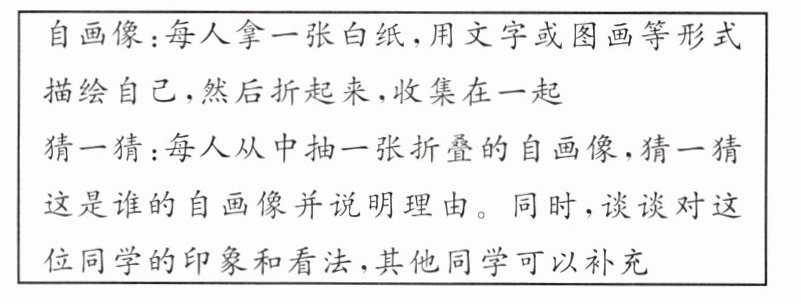 自画像:每人拿一张白纸,用文字或图画等形式
描绘自己,然后折起来,收集在一起
猜一猜:每人从中抽一张折叠的自画像,猜一猜
这是谁的自画像并说明理由。同时,谈谈对这
位同学的印象和看法,其他同学可以补充